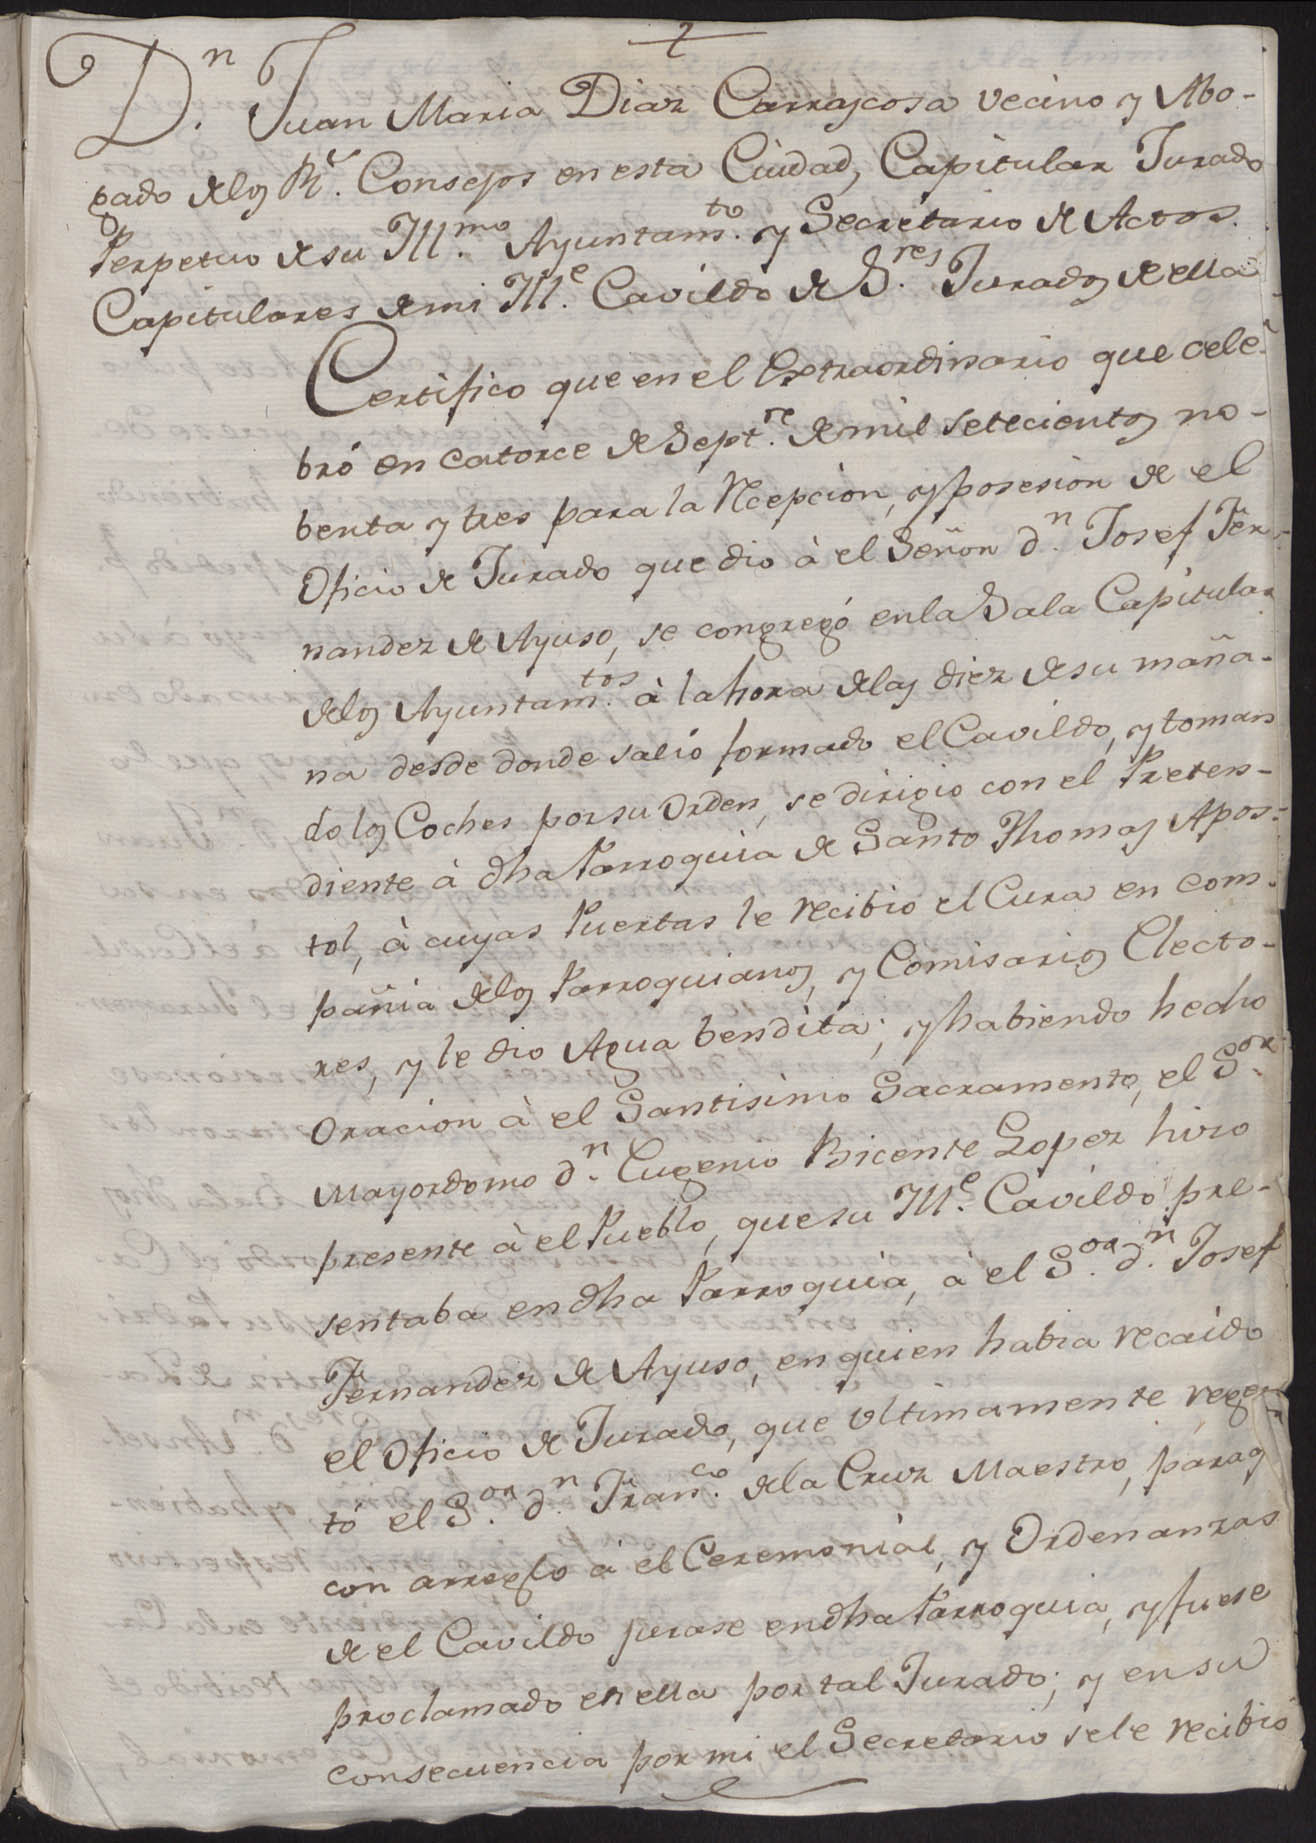 +
Dn. Juan Maria Diaz Carrascosa vecino y Abo-
gado delos Rs. Consejos en esta Ciudad, Capitular Jurado
Perpetuo de su Illmo. Ayuntamto. y Secretario de Actos
Capitulares de mi Ille. Cavildo de Sres. Jurados de ella
Certifico que en el Extraordinario que cele-
bró en catorce de Septre. de mil setecientos no-
benta y tres para la Recepcion, y posesion de el
Oficio de Jurado que dio à el Señor dn. Josef Fer-
nandez de Ayuso, se congregó en la Sala Capitular
delos Ayuntamtos. à la hora delas diez de su maña-
na desde donde salio formado el Cavildo, y toman
do los Coches por su Orden, se dirigio con el Preten-
diente à dha Parroquia de Santo Thomas Apos-
tol, à cuyas Puertas le recibio el Cura en com-
pañia delos Parroquianos, y Comisarios Electo-
res, y le dio Agua bendita; y habiendo hecho
Oracion à el Santisimo Sacramento, el Sor.
Mayordomo dn. Eugenio Bicente Lopez hizo
presente à el Pueblo, que su Ille. Cavildo pre-
sentaba en dha Parroquia, à el Sor. dn. Josef
Fernandez de Ayuso, en quien habia recaido
el Oficio de Jurado, que ultimamente regen-
tó el Sor. dn. Franco. dela Cruz Maestro, para q
con arreglo à el Ceremonial, y Ordenanzas
de el Cavildo jurase en dha Parroquia, y fuese
proclamado en ella por tal Jurado; y en su
consecuencia por mi el Secretario se le recibió